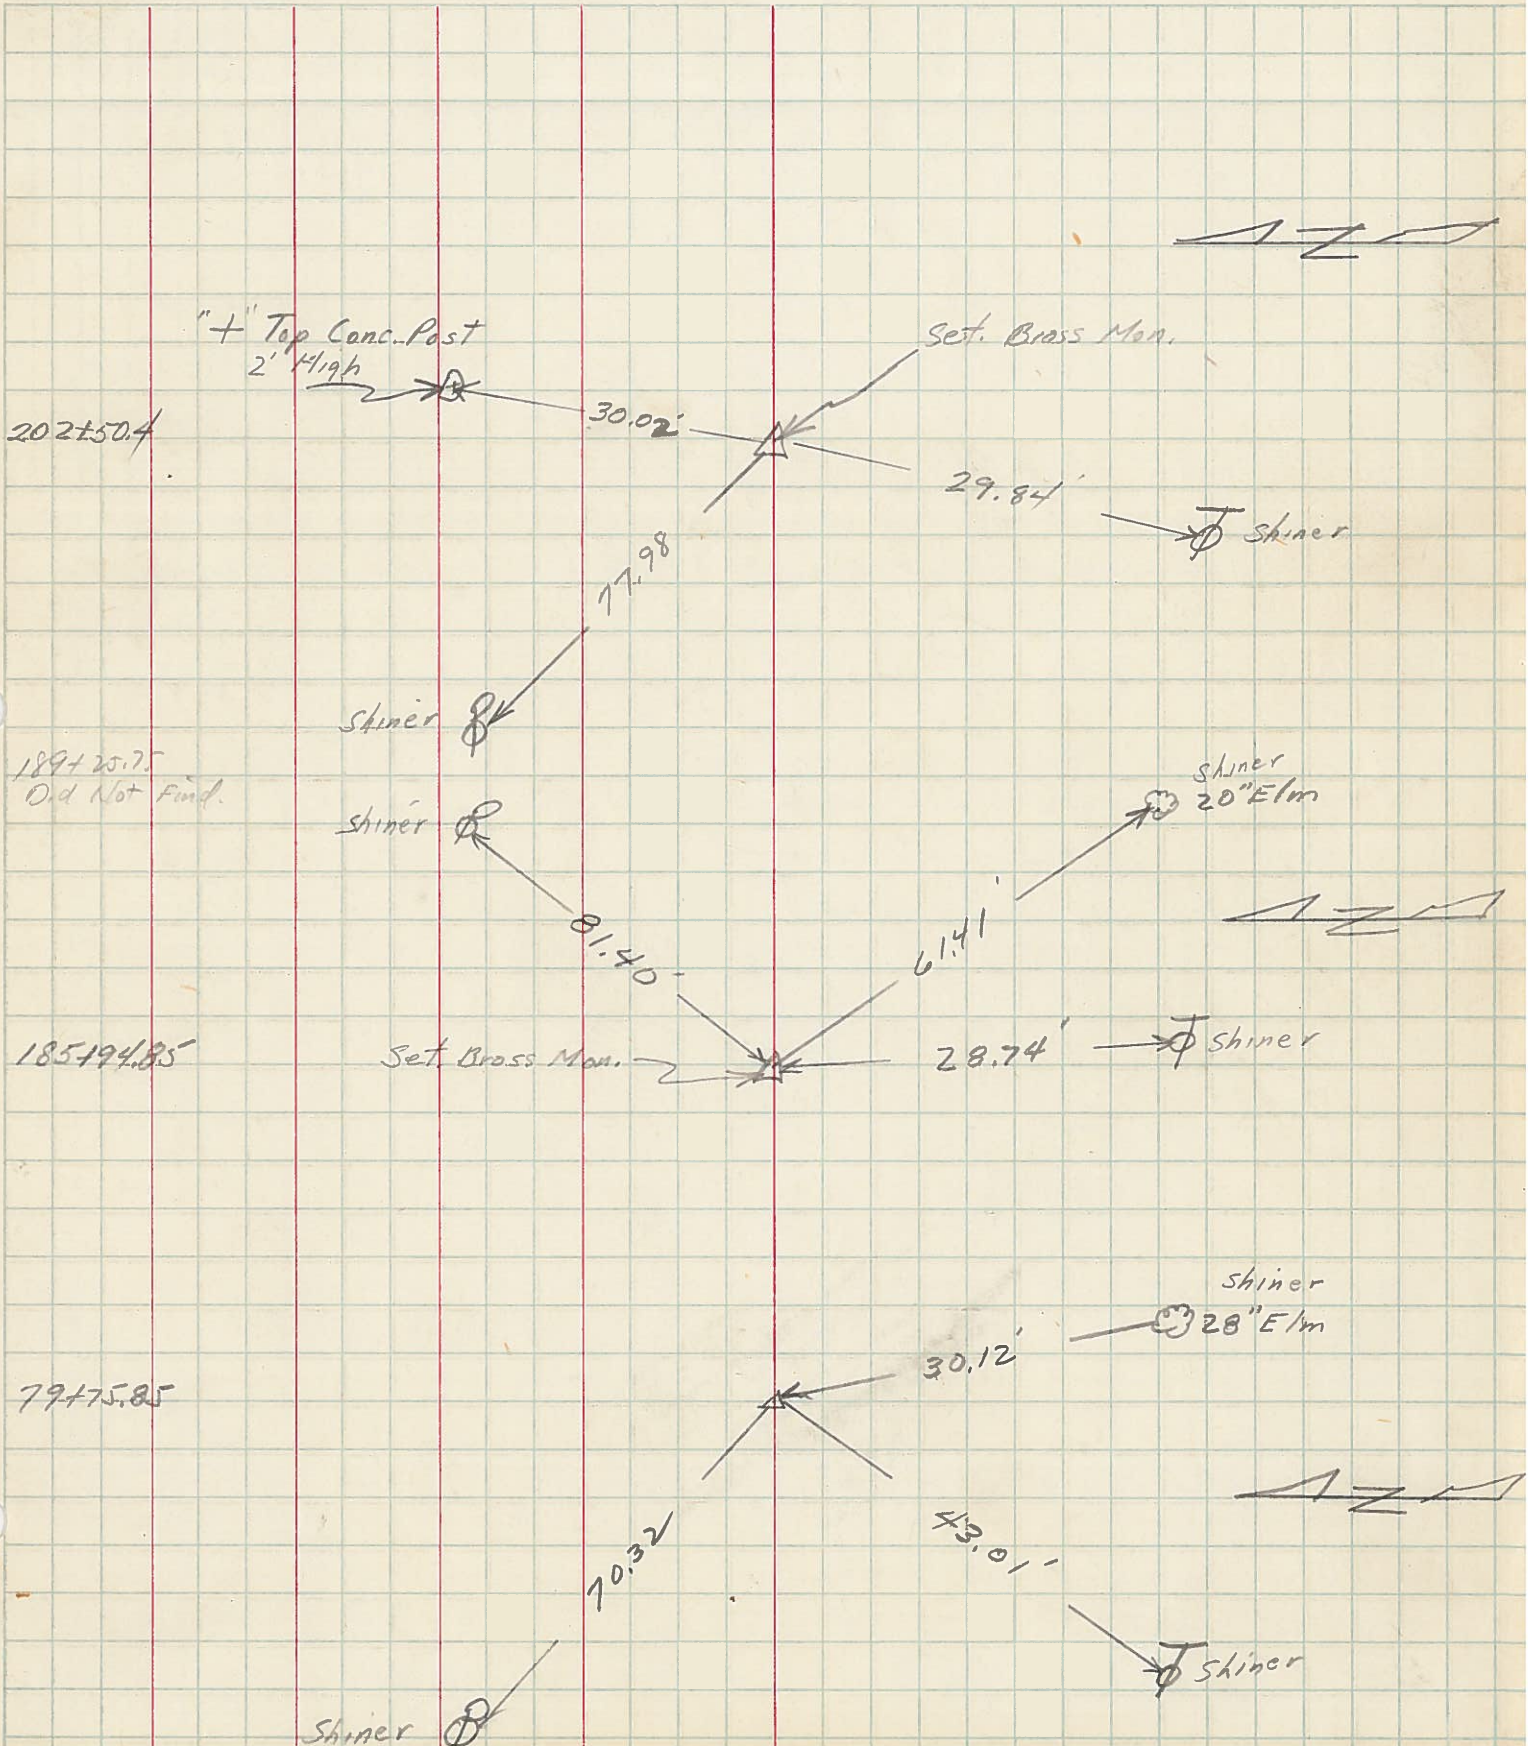 "+" Top Conc. Post
2' High
Set. Brass Mon.
202+50.4
30.02'
29.84'
Shiner
77.98
Shiner
189+25.75
Did Not Find.
Shiner
20" Elm
Shiner
81.40'
61.41'
185+94.85
Set. Brass Mon.
28.74'
Shiner
Shiner
28" Elm
30.12'
79+75.85
70.32
43.01'
Shiner
Shiner
Z
Z
Z